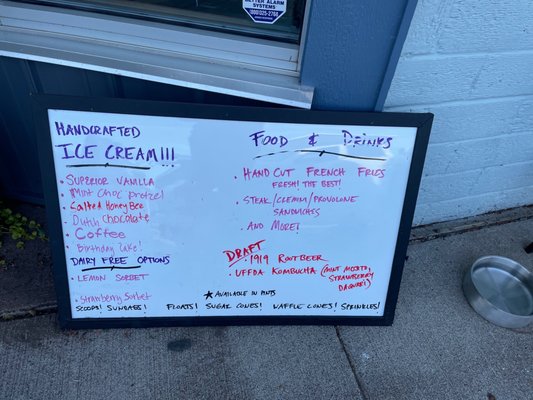 BETTER ALARM
SYSTEMS
HANDCRAFTED
ICE CREAM!!!
· SUPERIOR VANILLA
· Mint Choc pretzel
· Salted Honey Bee
· Dutch Chocolate
· Coffee
· Birthday Cake!
DAIRY FREE OPTIONS
· LEMON SORBET
· Strawberry Sorbet
SCOOPS! SUNDAES! FLOATS! SUGAR CONES! WAFFLE CONES! SPRINKLES!
FOOD & DRINKS
· HAND CUT FRENCH FRIES
FRESH! THE BEST!
· STEAK/CLEMM/PROVOLONE
SANDWICHES
· AND MORE!
DRAFT
· 1919 ROOTBEER
· UFFDA KOMBUCHA (MINT MOJITO,
STRAWBERRY
DAQUIRI)
★ AVAILABLE IN PINTS